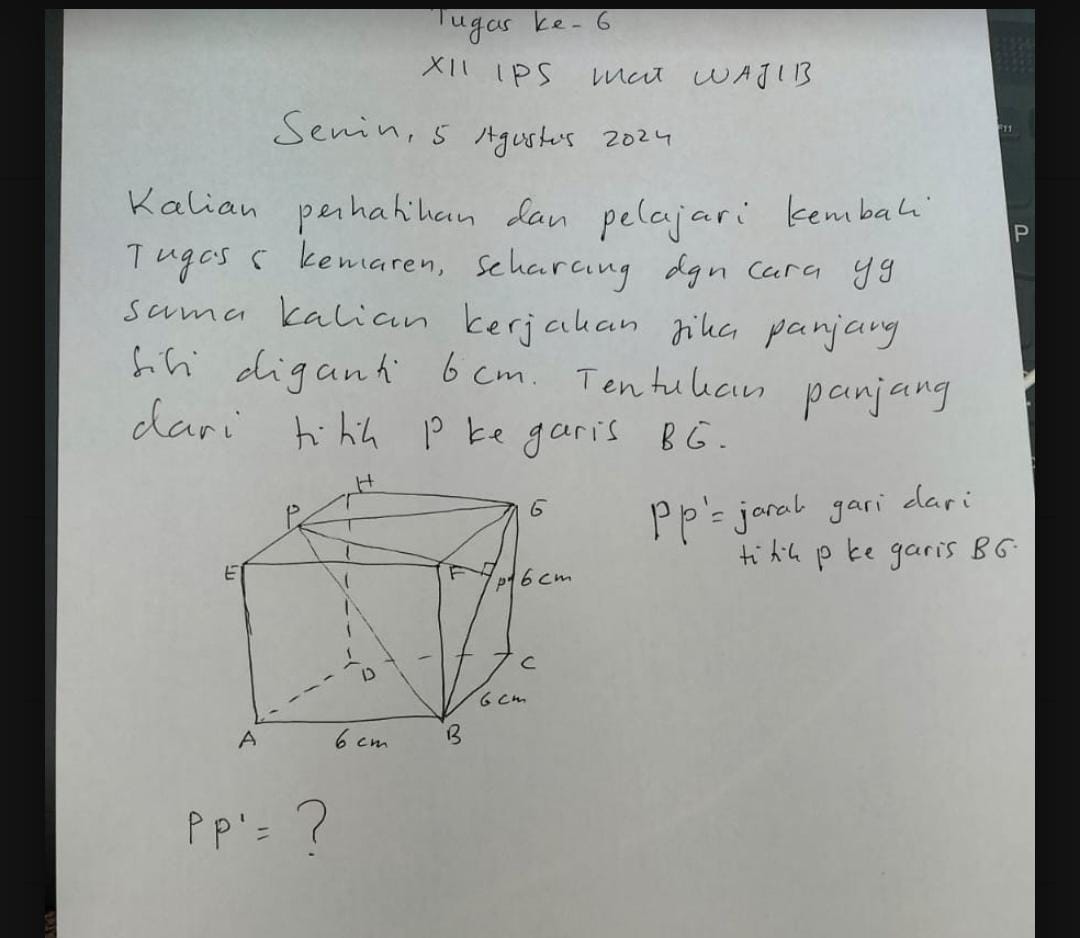 Tugas ke-6
XII IPS mat WAJIB
Senin, 5 Agustus 2024
Kalian perhatikan dan pelajari kembali
Tugas 5 kemaren, sekarang dgn cara yg
sama kalian kerjakan jika panjang
sisi diganti 6 cm. Tentukan panjang
dari titik P ke garis BG.
H
P
G
PP'= jarak gari dari
titik p ke garis BG.
E
F
P'
6 cm
D
C
6 cm
A
6 cm
B
PP'= ?
P